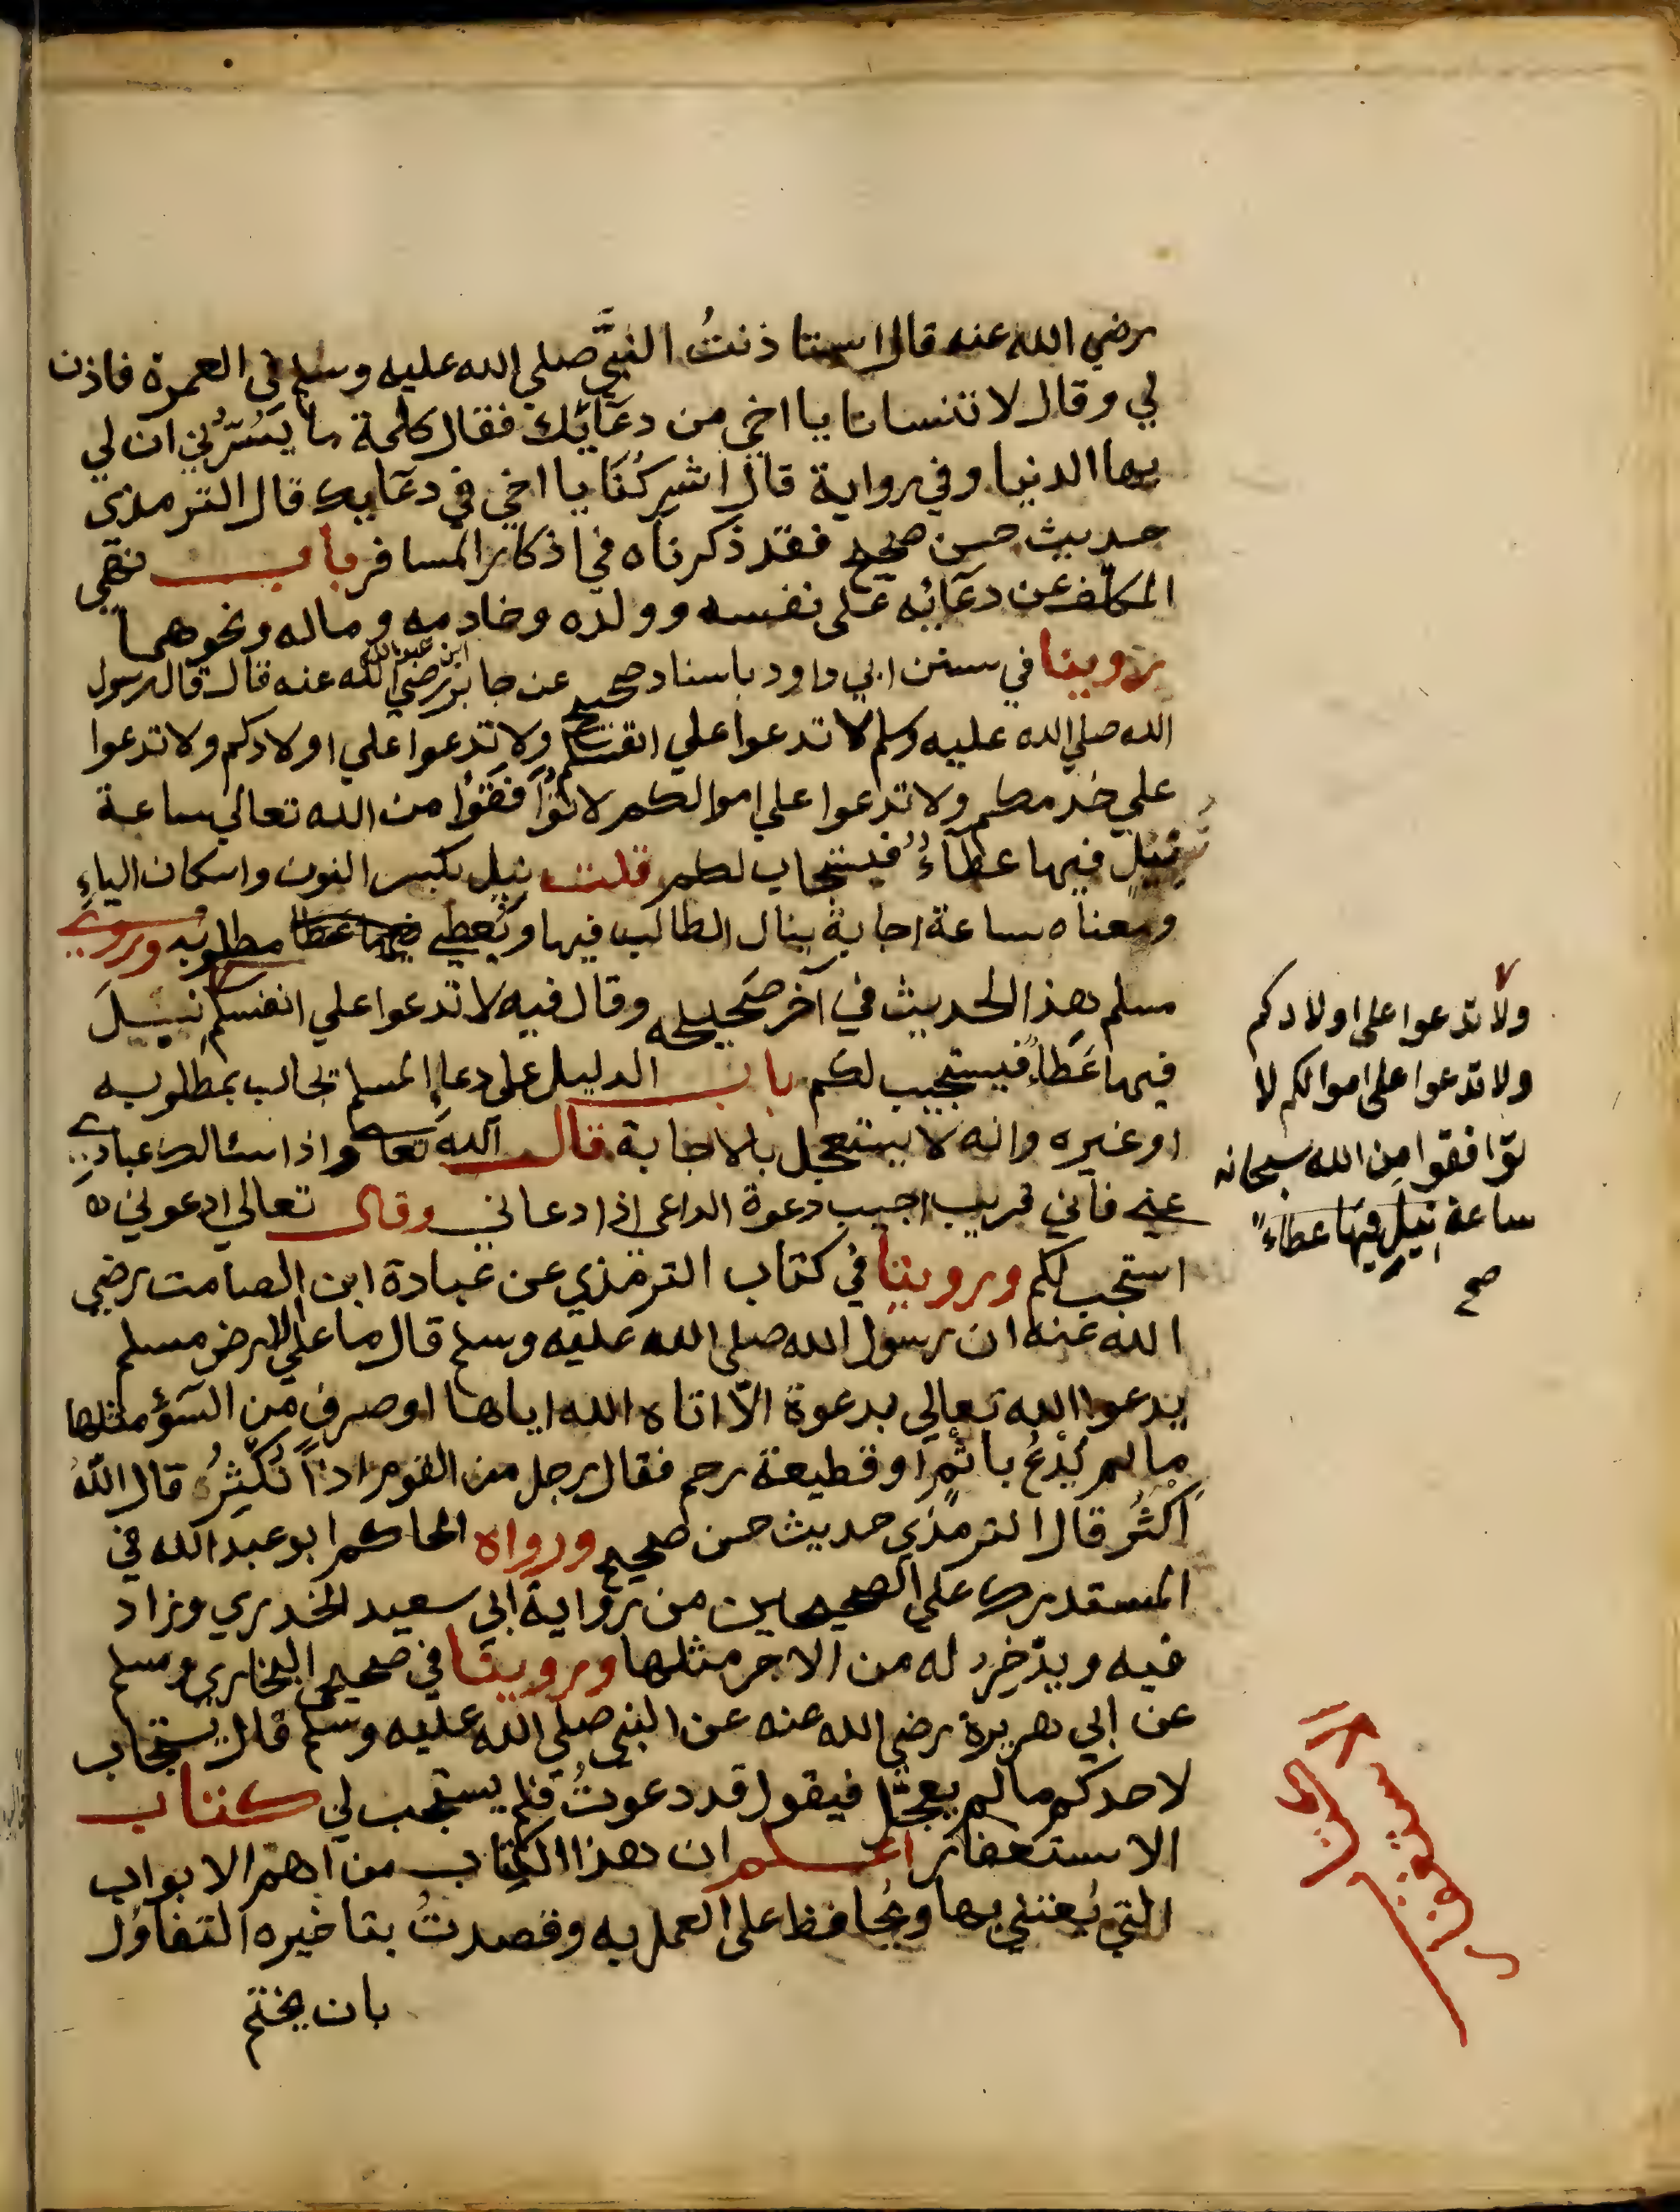 رضي الله عنه قال استاذنتُ النبيَّ صلي الله عليه وسلم في العمرة فاذن
لي وقال لا تنسانا يا اخي من دعآئِك فقال كلمة ما يَسُرُّني ان لي
بها الدنيا وفي رواية قال اشركْنَا يا اخي في دعآيك قال الترمذي
حديث حسن صحيح فقد ذكرناه في اذكار المسافر باب نهي
المكلف عن دعآئه على نفسه وولده وخادمه وماله ونحوهما
روينا في سنن ابي داود باسناد صحيح عن جابر ابن عبد الله رضي الله عنه قال قال رسول
الله صلي الله عليه وسلم لا تدعوا علي انفسكم ولا تدعوا علي اولادكم ولا تدعوا
علي خدمكم ولا تدعوا علي اموالكم لا تُوَافقوُا من الله تعالي ساعة
نيل فيها عطآءٌ فيستجاب لكم قلت نيل بكسر النون واسكان الياءِ
ومعناه ساعة اجابة ينال الطالب فيها ويُعطي فيها عطا مطلوبه وروي
مسلم هذا الحديث في آخر صَحيحه وقال فيه لا تدعوا علي انفسكم نيل
فيها عَطَاءً فيستجيب لكم باب الدليل على دعاءِ المسلم يجاب بمطلوبه
او غيره وانه لا يستعجل بالاجابة قال الله تعالى واذا سئالك عبادي
عني فاني قريب اجيب دعوة الداعى اذا دعاني وقال تعالي ادعوني
استجب لكم وروينا في كتاب الترمذي عن عبادة ابن الصامت رضي
الله عنه ان رسول الله صلي الله عليه وسلم قال ما علي الارض مسلم
يدعوا الله تعالي بدعوة الّا اتاه الله اياها او صرف من السوٓء مثلها
ما لم يَدْعُ باثمٍ او قطيعة رحم فقال رجل من القوم اذاً نُكْثِرُ قال اللّهُ
اَكْثَرُ قال الترمذي حديث حسن صحيح ورواه الحاكم ابو عبد الله في
المستدرك علي الصحيحين من رواية ابي سعيد الخدري وزاد
فيه ويدّخِر له من الاجر مثلها وروينا في صحيحي البخاري ومسلم
عن ابي هريرة رضي الله عنه عن النبي صلي الله عليه وسلم قال يستجاب
لاحدكم ما لم يعجّل فيقول قد دعوتُ فلم يستجب لي كتاب
الاستغفار اعلم ان هذا الكتاب من اهم الابواب
التي يُعتني بها ويُحافظ على العمل به وقصدتُ بتاخيره التفاؤل
بان يختم
ولا تدعوا على اولادكم
ولا تدعوا على اموالكم لا
توافقوا مِن الله سبحانه
ساعة نيلٍ فيها عطاءً
صح